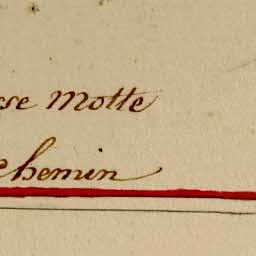 sse Motte
Chemin